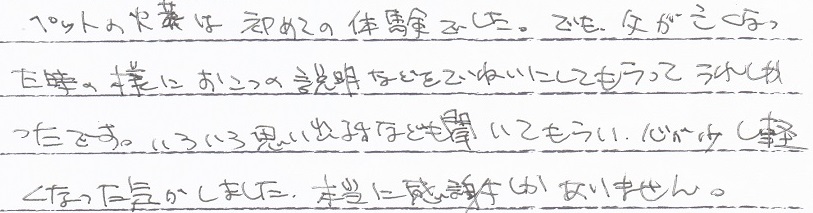 ペットの火葬は初めての体験でした。でも、父が亡くなっ
た時の様におこつの説明などをていねいにしてもらって うれしか
ったです。いろいろ思い出話なども聞いてもらい、心が少し軽
くなった気がしました。本当に感謝しかありません。